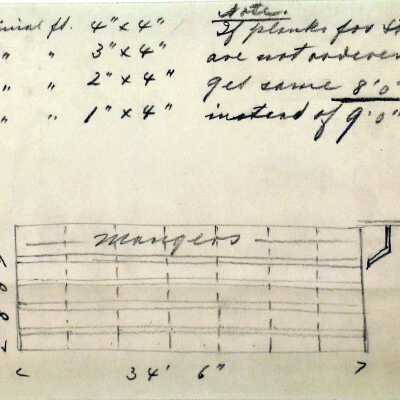 ft. 4" x 4"
" " 3" x 4"
" " 2" x 4"
" " 1" x 4"
Note.
If planks for
are not ordered
get same 8'0"
instead of 9'0"
mangers
34' 6"